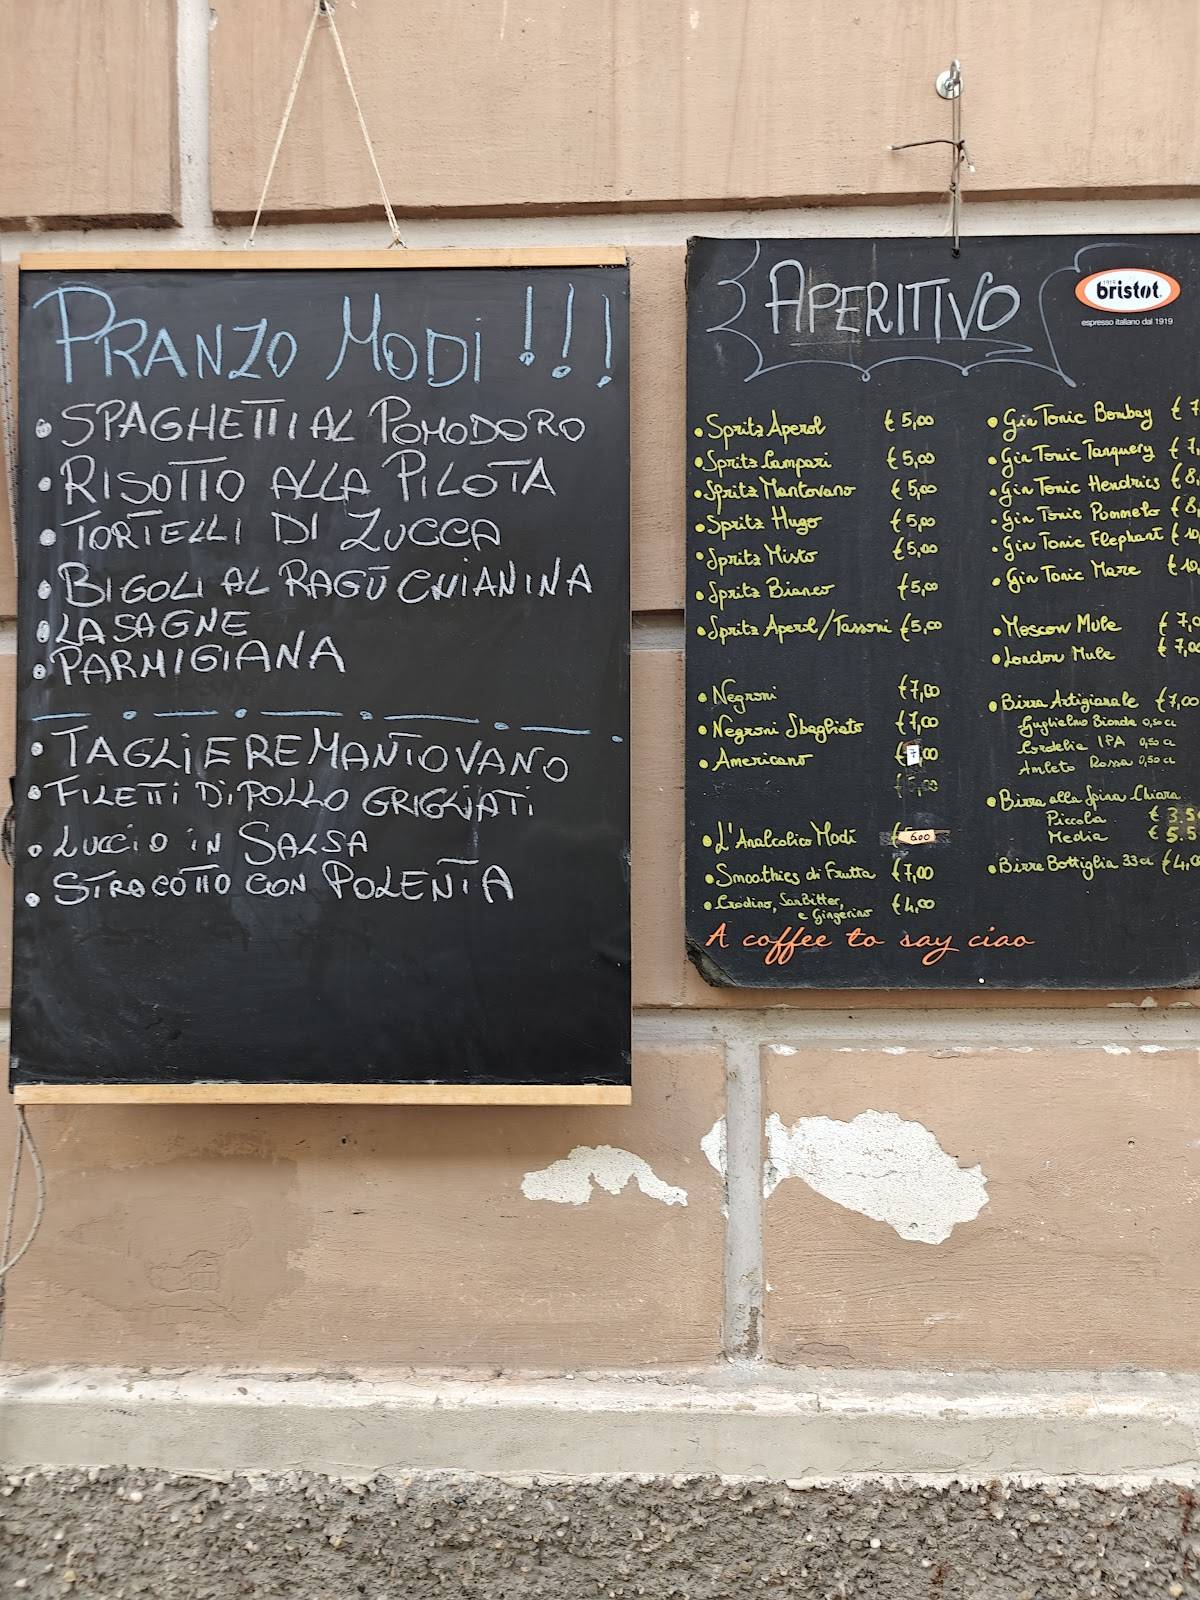 PRANZO MODì !!!
• SPAGHETTI AL POMODORO
• RISOTTO ALLA PILOTA
• TORTELLI DI ZUCCA
• BIGOLI AL RAGÙ CHIANINA
• LASAGNE
• PARMIGIANA
• TAGLIERE MANTOVANO
• FILETTI DI POLLO GRIGLIATI
• LUCCIO IN SALSA
• STRACOTTO CON POLENTA
APERITIVO
bristot
espresso italiano dal 1919
• Spritz Aperol € 5,00
• Spritz Campari € 5,00
• Spritz Mantovano € 5,00
• Spritz Hugo € 5,00
• Spritz Misto € 5,00
• Spritz Bianco € 5,00
• Spritz Aperol/Tassoni € 5,00
• Negroni € 7,00
• Negroni Sbagliato € 7,00
• Americano € 7,00
• L'Analcolico Modì € 6.00
• Smoothies di Frutta € 7,00
• Crodino, SanBitter,
e Gingerino € 4,00
• Gin Tonic Bombay € 7
• Gin Tonic Tanquery € 7,
• Gin Tonic Hendrics € 8,
• Gin Tonic Pommelo € 8,
• Gin Tonic Elephant € 10,
• Gin Tonic Mare € 10,
• Moscow Mule € 7,0
• London Mule € 7,00
• Birra Artigianale € 7,00
Guglielmo Bionda 0,50 cl
Cordelia IPA 0,50 cl
Amleto Rossa 0,50 cl
• Birra alla Spina Chiara
Piccola € 3.5
Media € 5.5
• Birre Bottiglia 33 cl € 4,0
A coffee to say ciao